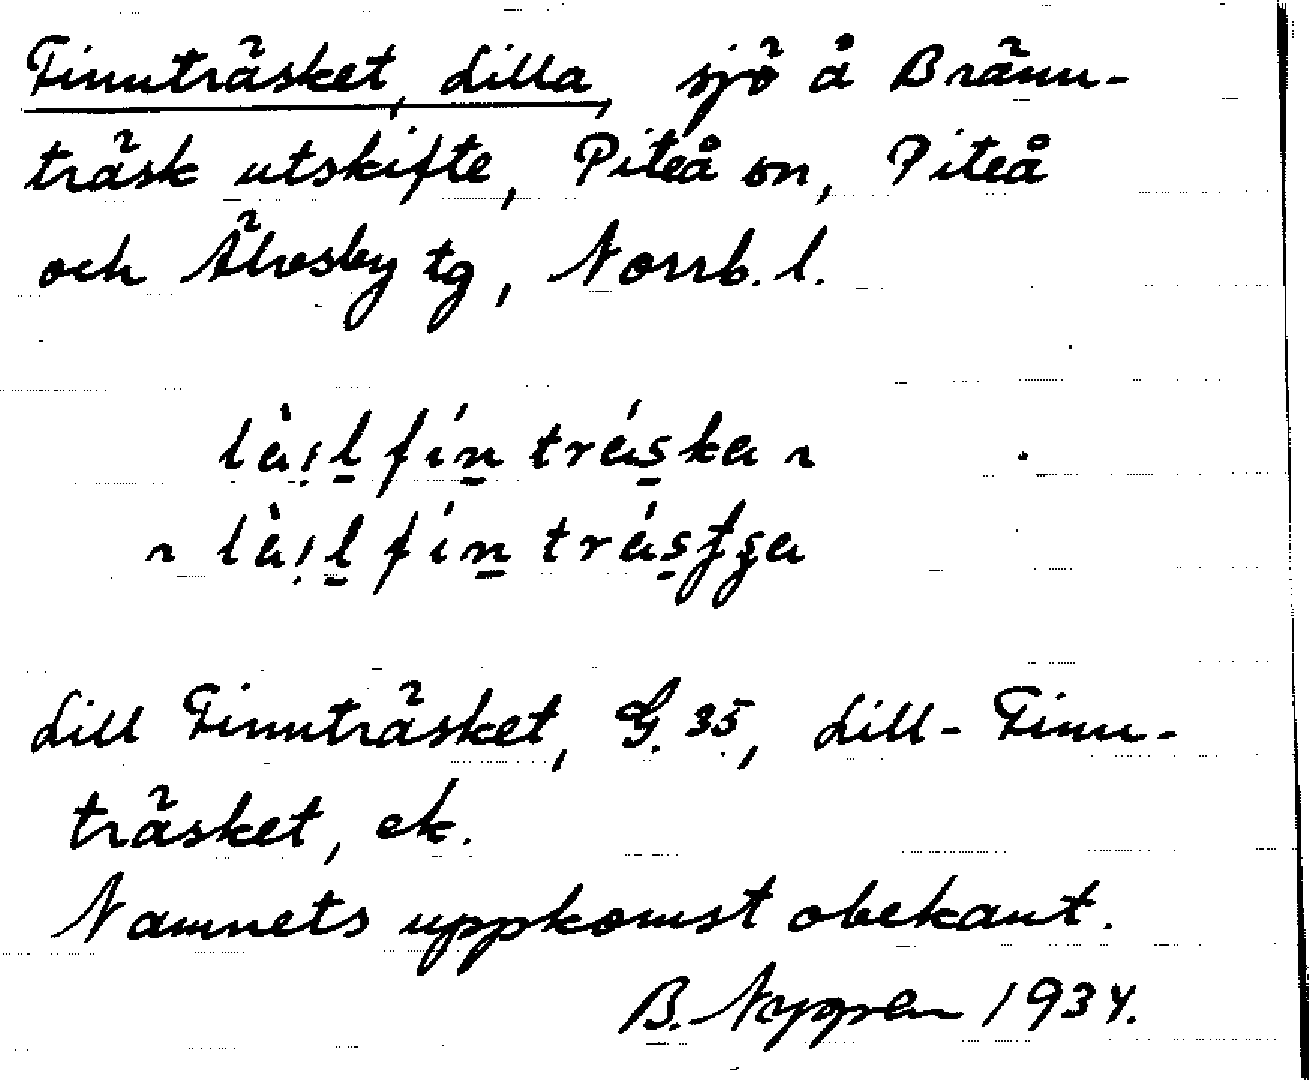 Finnträsket, Lilla, sjö å Bränn-
träsk utskifte, Piteå sn, Piteå
och Älvsby tg, Norrb. l.
Lill Finnträsket, G. 35, Lill-Finn-
träsket, ek.
Namnets uppkomst obekant.
B. Nygren 1934.